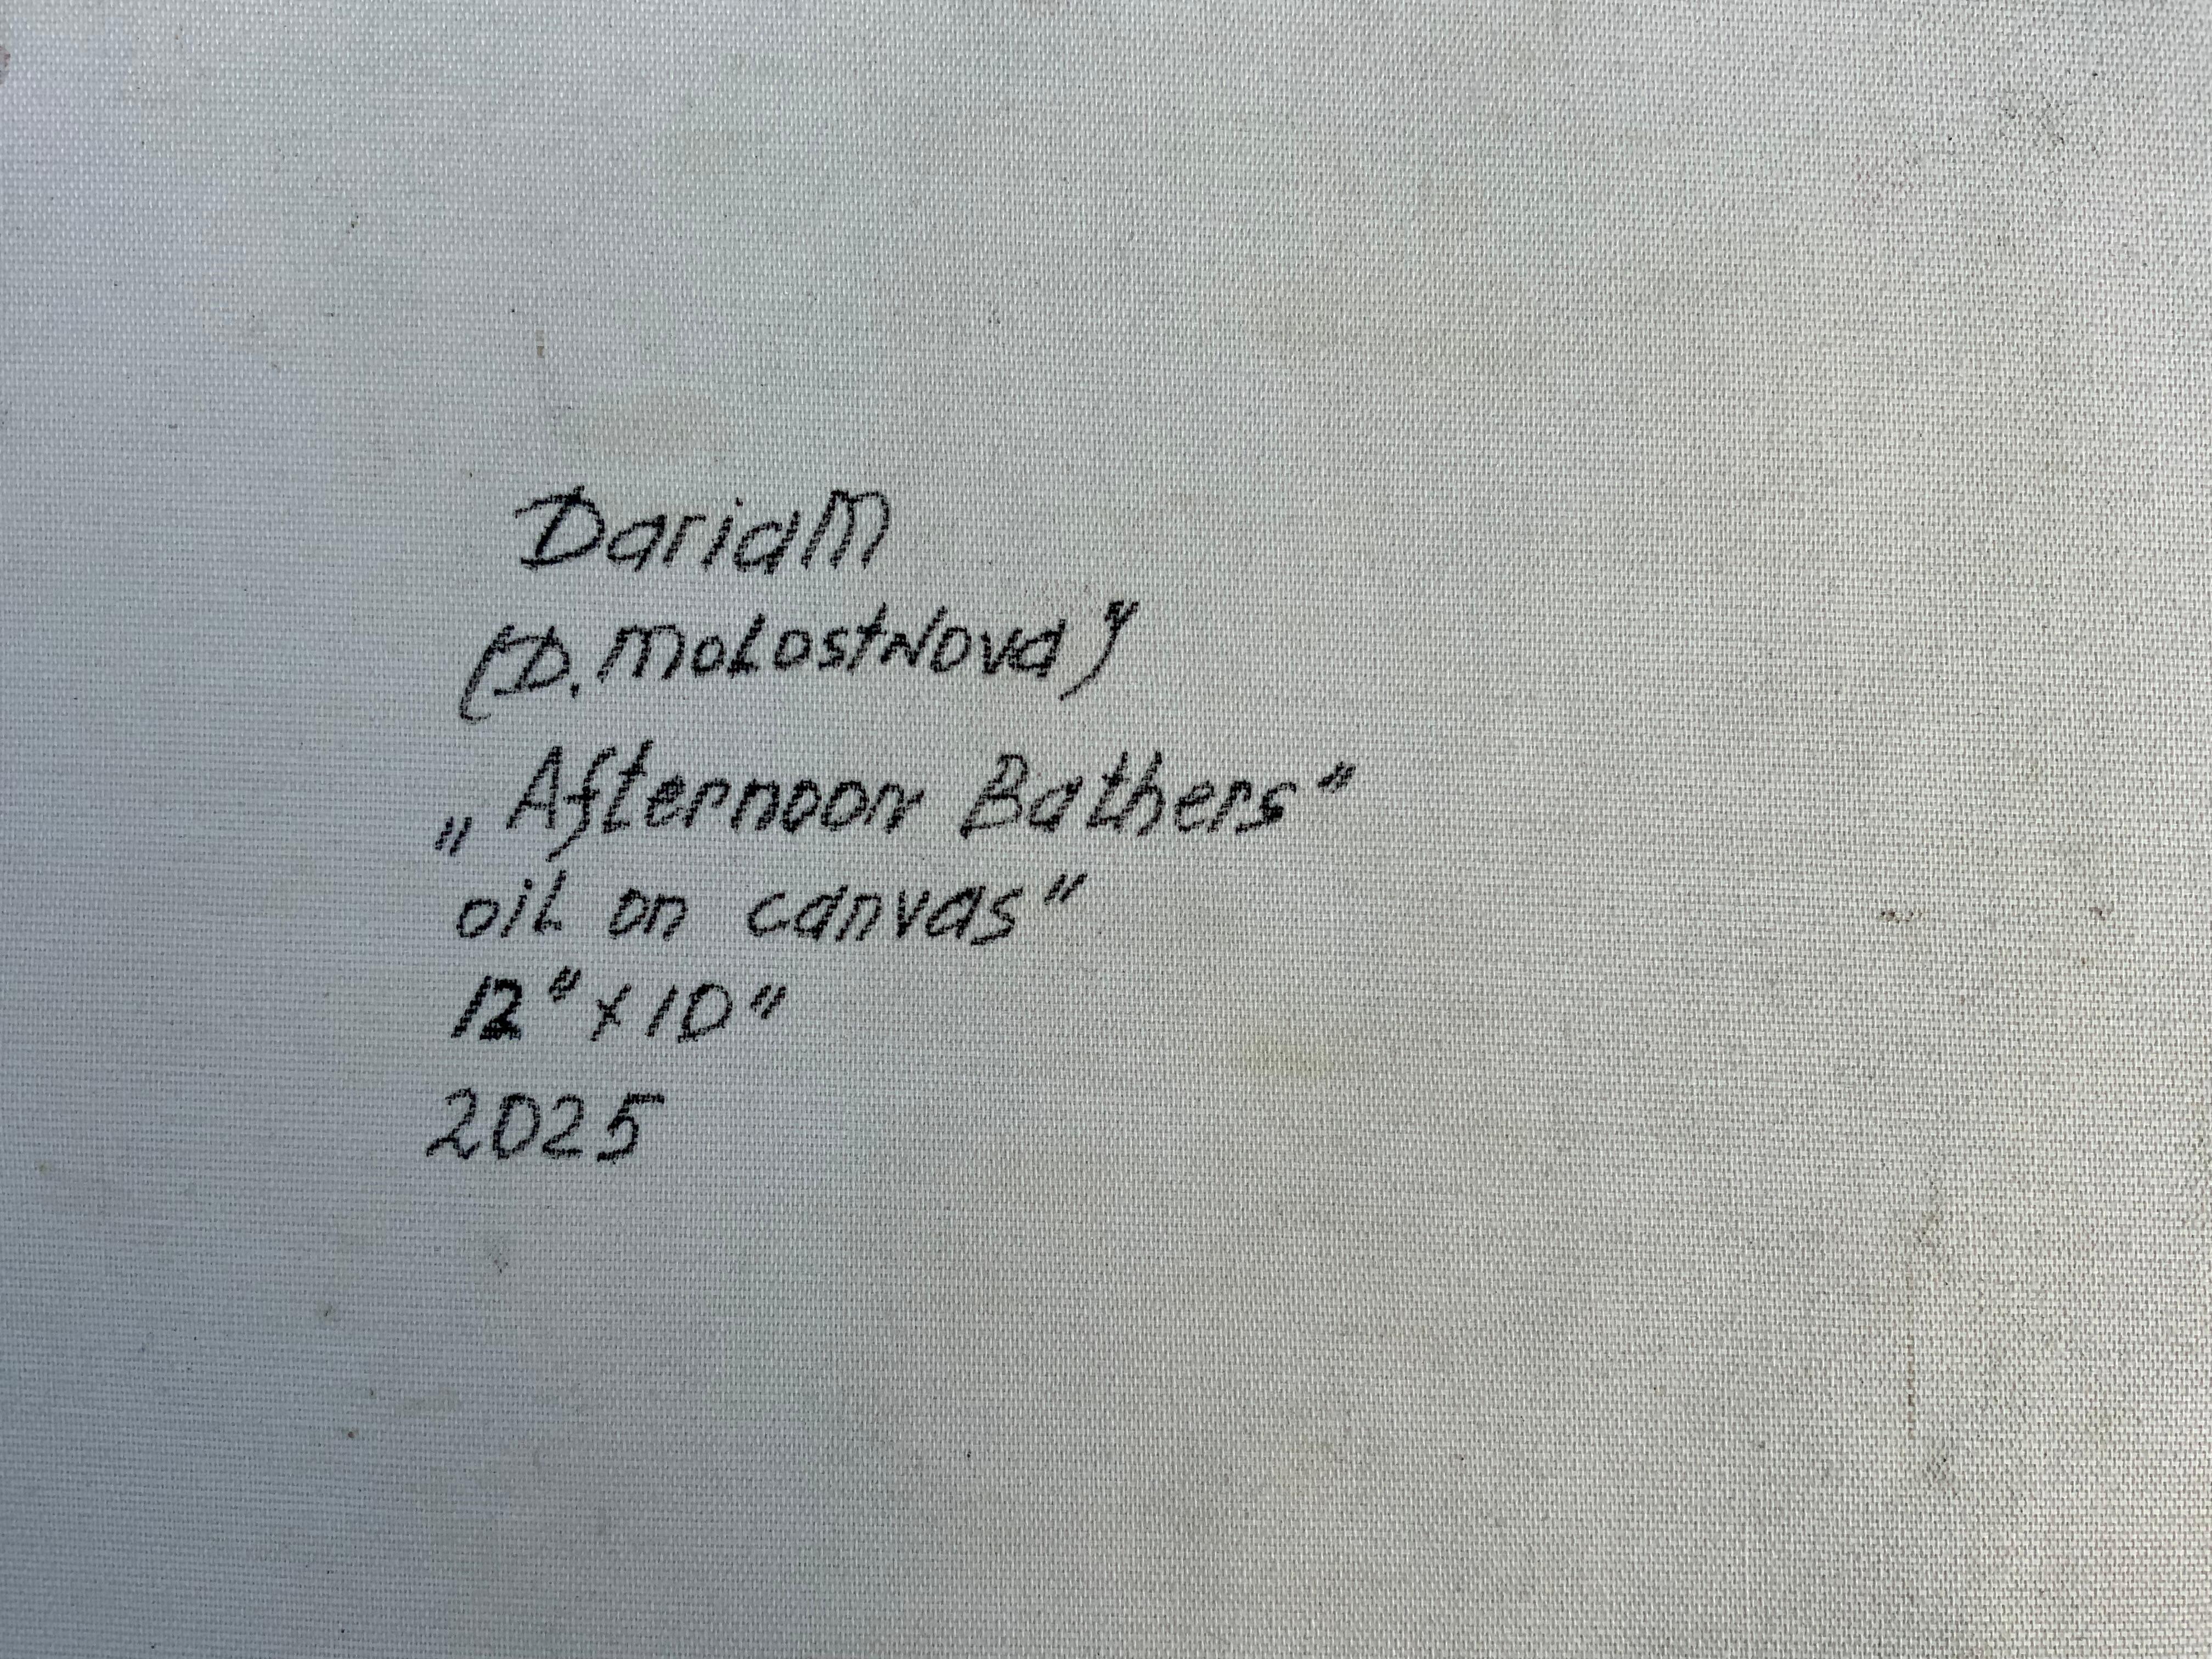 DariaM
(D. MoLostNova)"
„Afternoon Bathers"
oiL on canvas"
12" x 10"
2025